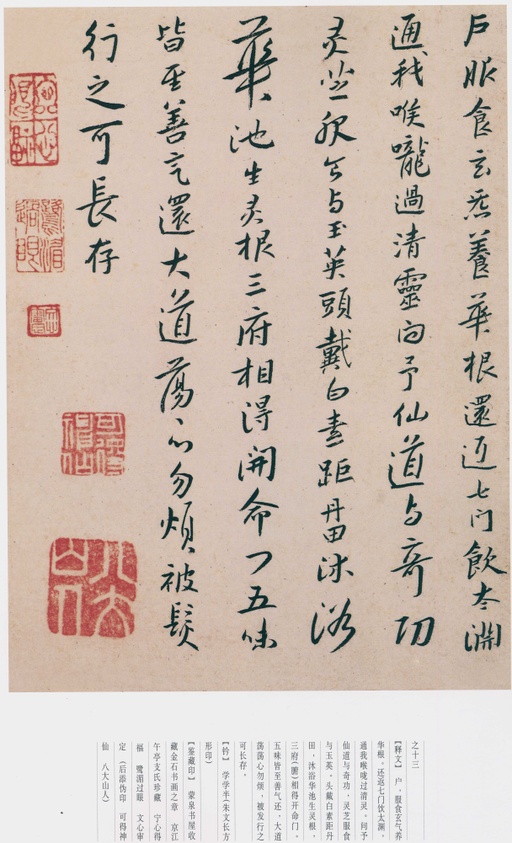 户服食玄炁養華根還近七门飲太淵
通我喉嚨過清靈问予仙道与奇功
灵芝服食与玉英頭戴白素距丹田沐浴
華池生灵根三府相得開命门五味
皆至善气還大道蕩蕩心勿煩被髮
行之可長存
八大山人
之十三
【释文】 户，服食玄气养
华根。还返七门饮太渊。
通我喉咙过清灵。问予
仙道与奇功，灵芝服食
与玉英。头戴白素距丹
田，沐浴华池生灵根。
三府(腑)相得开命门。
五味皆至善气还，大道
荡荡心勿烦，被发行之
可长存。
【钤】 学学半(朱文长方
形印)
【鉴藏印】 蒙泉书屋收
藏金石书画之章 京江
午亭支氏珍藏 宁心得
福 鹭湄过眼 文心审
定 (后添伪印 可得神
仙 八大山人)